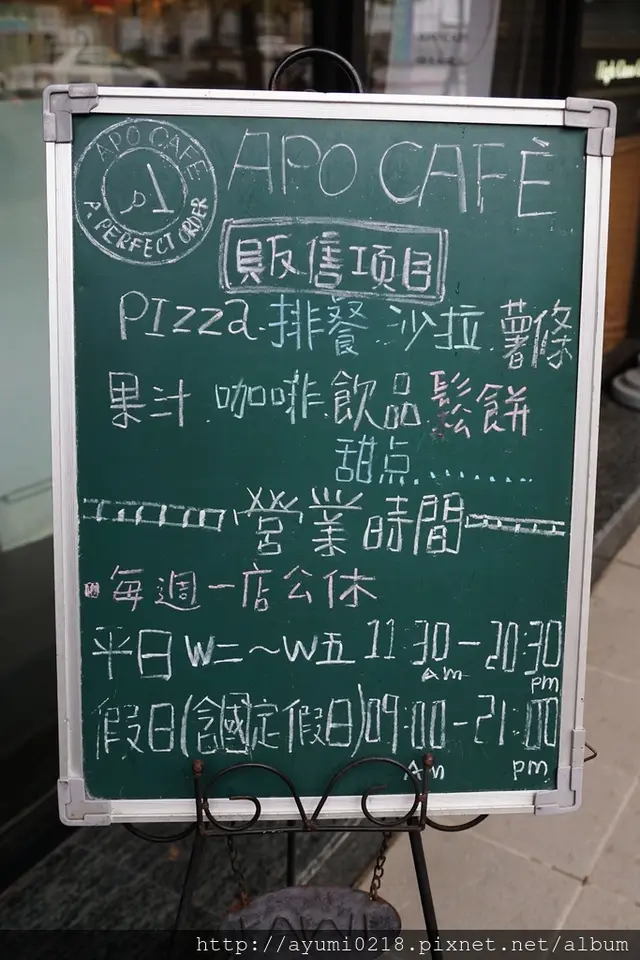 APO CAFE
A PERFECT ORDER
APO CAFÉ
販售项目
PIZZa.排餐 沙拉 薯條
果汁.咖啡.飲品.鬆餅
甜点........
營業時間
每週一店公休
平日W二~W五 11:30-20:30
Am pm
假日(含國定假日)09:00-21:00
Am pm
http://ayumi0218.pixnet.net/album